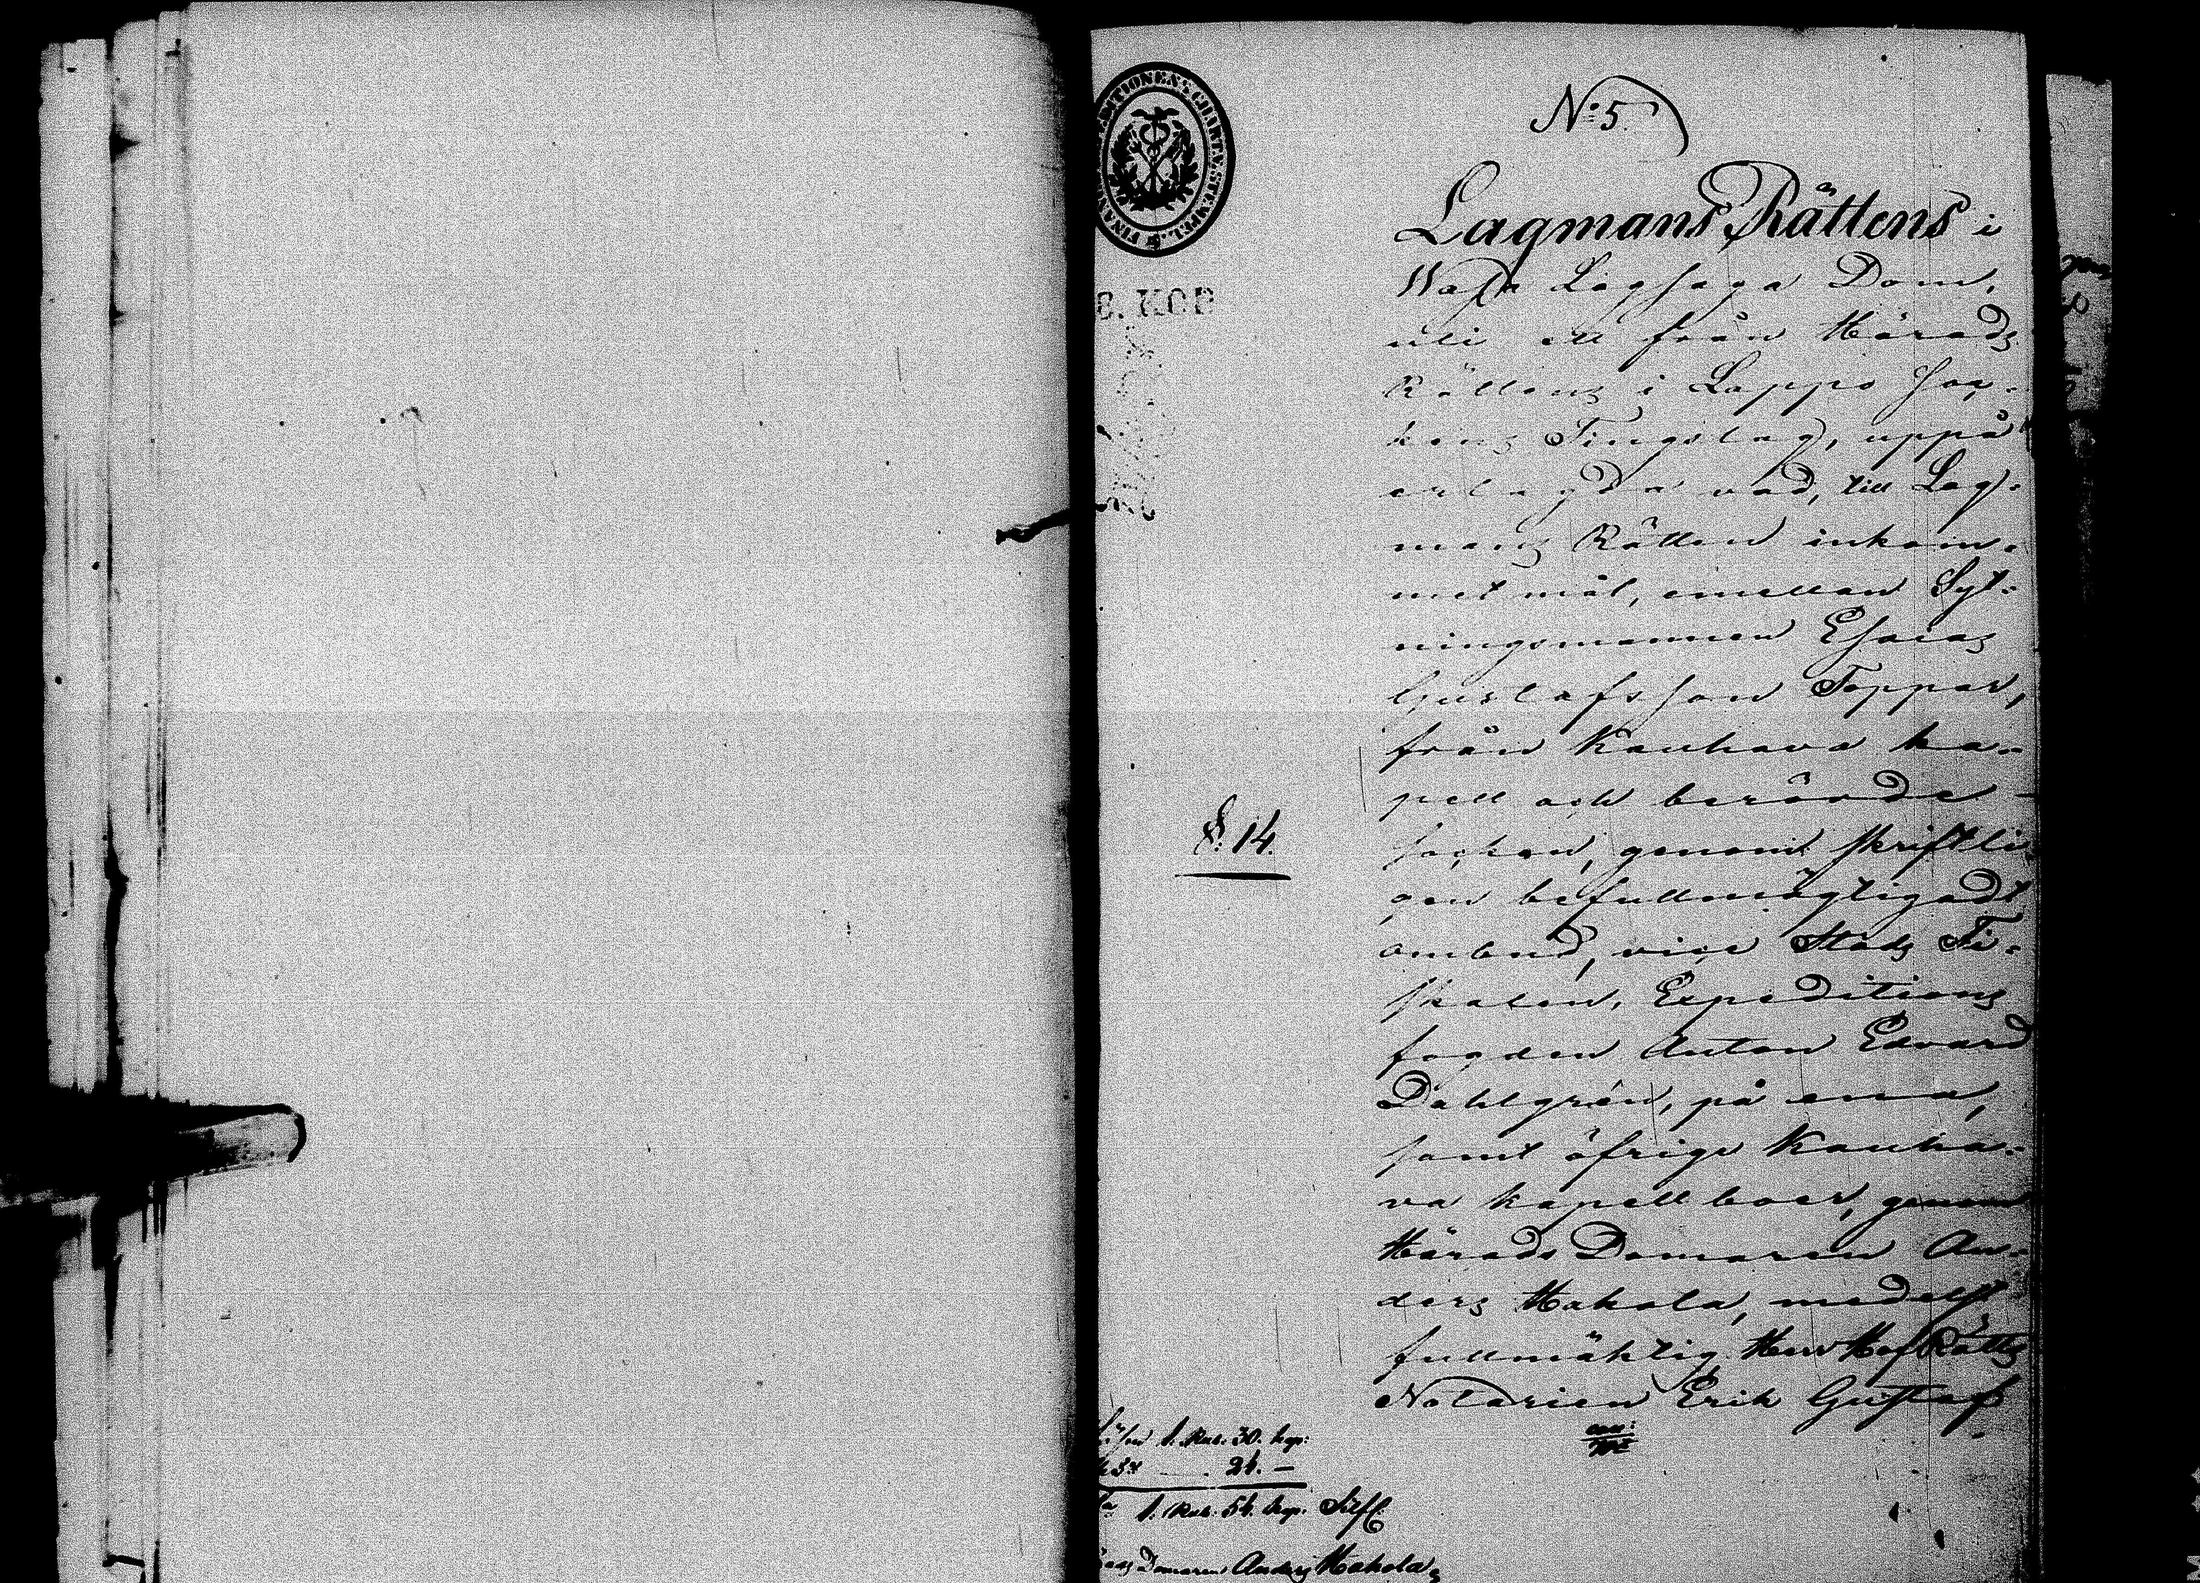 N:o 5.
Lagmans Rättens i
Wasa Lagsaga Dom,
uti ett från Härads
Rättens i Lappo Soc-
kens Tingslag, uppå
erlagda vad, till Lag-
mans Rätten inkom-
met mål, emellan Syt-
ningsmannen Esaias
Gustafsson Toppar,
från Kauhava ka-
pell och berörde
socken, genom skriftli-
gen befullmägtigadt
ombud, vice Stads Fi-
skalen, Expeditions
fogden Anton Edvard
Dahlgrén, på ena,
samt öfrige Kauha-
va kapellboer, genom
Härads Domaren An-
ders Hakola, medelst
fullmäktig Herr HofRätts
Notarien Erik Gustaf
§. 14.
8. KOP
CHARTÆ STEMPEL.
Lösen 1. Rub. 30. kop:
24. —
1. Rub. 54. kop. Silf.
Domaren Anders Hakola